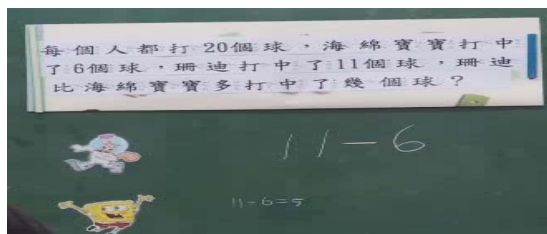 每個人都打20個球，海綿寶寶打中
了6個球，珊迪打中了11個球，珊迪
比海綿寶寶多打中了幾個球？
11-6
11-6=5